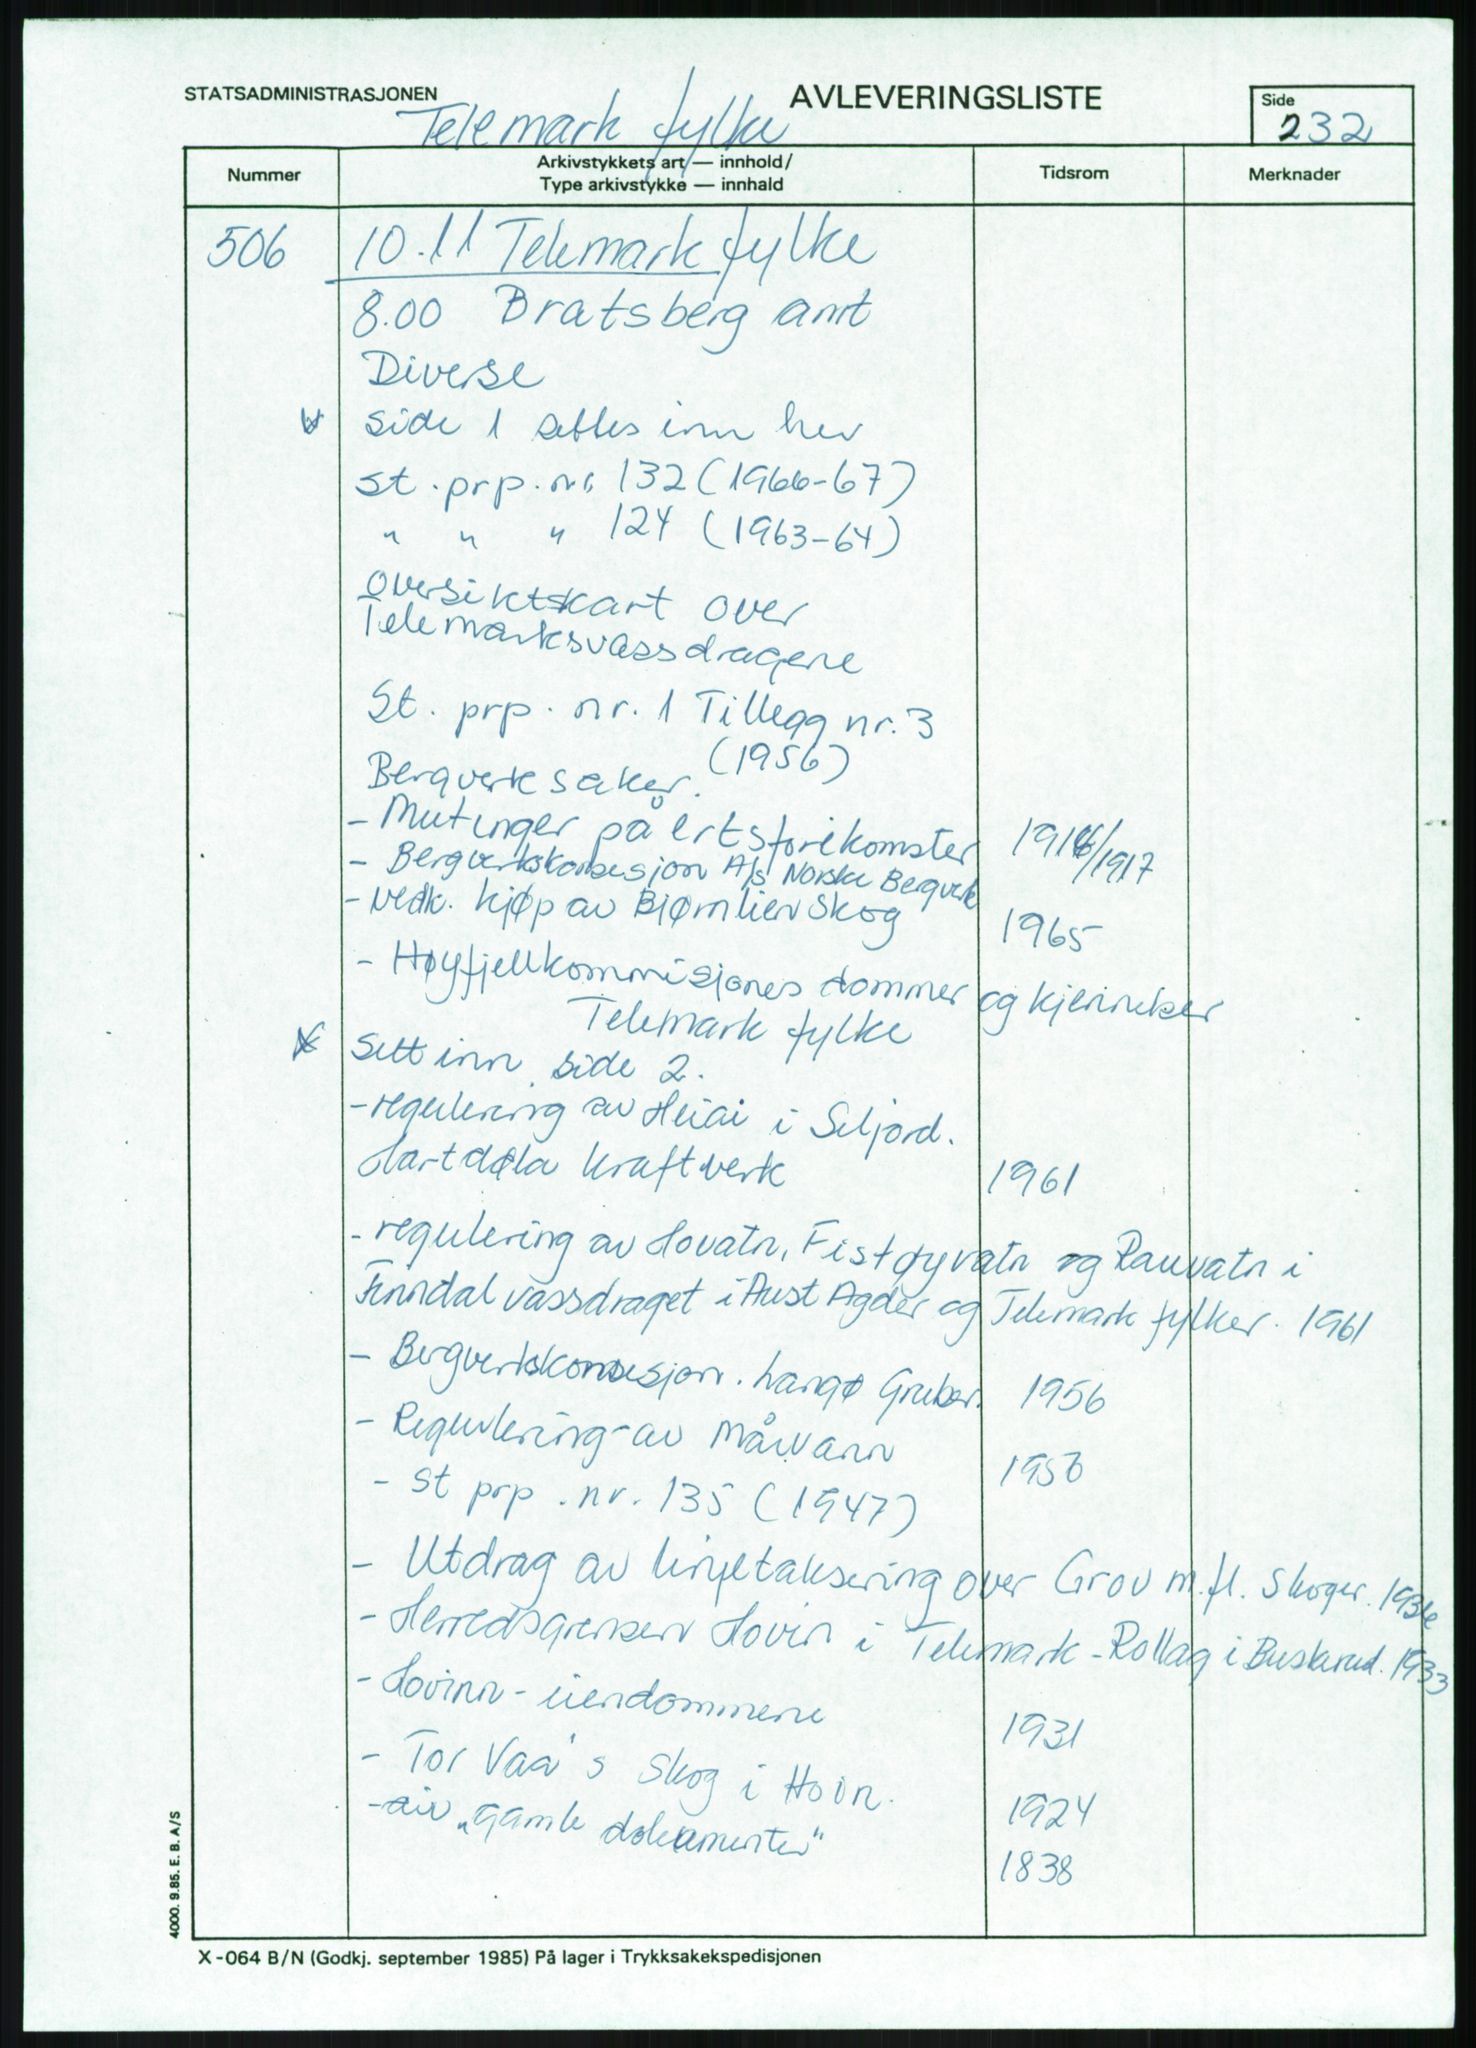 STATSADMINISTRASJONEN
AVLEVERINGSLISTE
Side
232
Telemark fylke
Nummer
Arkivstykkets art — innhold/
Type arkivstykke — innhald
Tidsrom
Merknader
506 10.11 Telemark fylke
8.00 Bratsberg amt
Diverse
side 1 settes inn her
St. prp. nr. 132 (1966-67)
" " " 124 (1963-64)
Oversiktskart over
Telemarksvassdragene
St. prp. nr. 1 Tillegg nr. 3
(1956)
Bergverksaker.
- Mutinger på ertsforekomster 1916/1917
- Bergverkskonsesjon A/s Norske Bergverk
- vedk. kjøp av Bjørnlien skog 1965
- Høyfjellkommisjones dommer og kjennelser
Telemark fylke
Sett inn side 2.
- regulering av Heiai i Seljord.
Hartdøla kraftverk 1961
- regulering av Hovatn, Fistøyvatn og Rauvatn i
Finndalvassdraget i Aust Agder og Telemark fylker. 1961
- Bergverkskonsesjon. Langø Gruber. 1956
- Regulering av Mårvann 1956
- St prp. nr. 135 (1947)
- Utdrag av linjetaksering over Grov m.fl. skoger. 1936
- Herredsgrensen Hovin i Telemark - Rollag i Buskerud. 1933
- Hovinn - eiendommene 1931
- Tor Vaa's skog i Hovin. 1924
- div „gamle dokumenter" 1838
4000. 9.85. E. B. A/S
X-064 B/N (Godkj. september 1985) På lager i Trykksakekspedisjonen